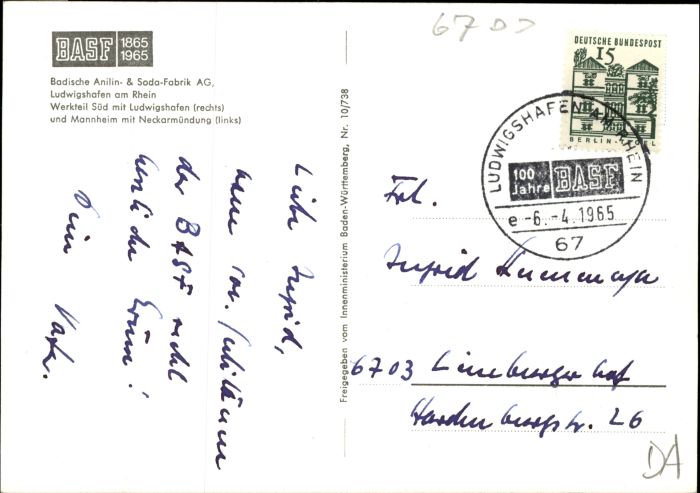 BASF 1865
1965
Badische Anilin- & Soda-Fabrik AG,
Ludwigshafen am Rhein
Werkteil Süd mit Ludwigshafen (rechts)
und Mannheim mit Neckarmündung (links)
Liebe Ingrid,
vom Jubiläum
der BASF recht
herzliche Grüße!
Dein Vater.
Freigegeben vom Innenministerium Baden-Württemberg, Nr. 10/738
6700
DEUTSCHE BUNDESPOST
15
BERLIN-TEGEL
LUDWIGSHAFEN AM RHEIN
100 Jahre BASF
e -6.-4.1965
67
Frl.
Ingrid
6703 Limburgerhof
Hardenburgstr. 26
DA